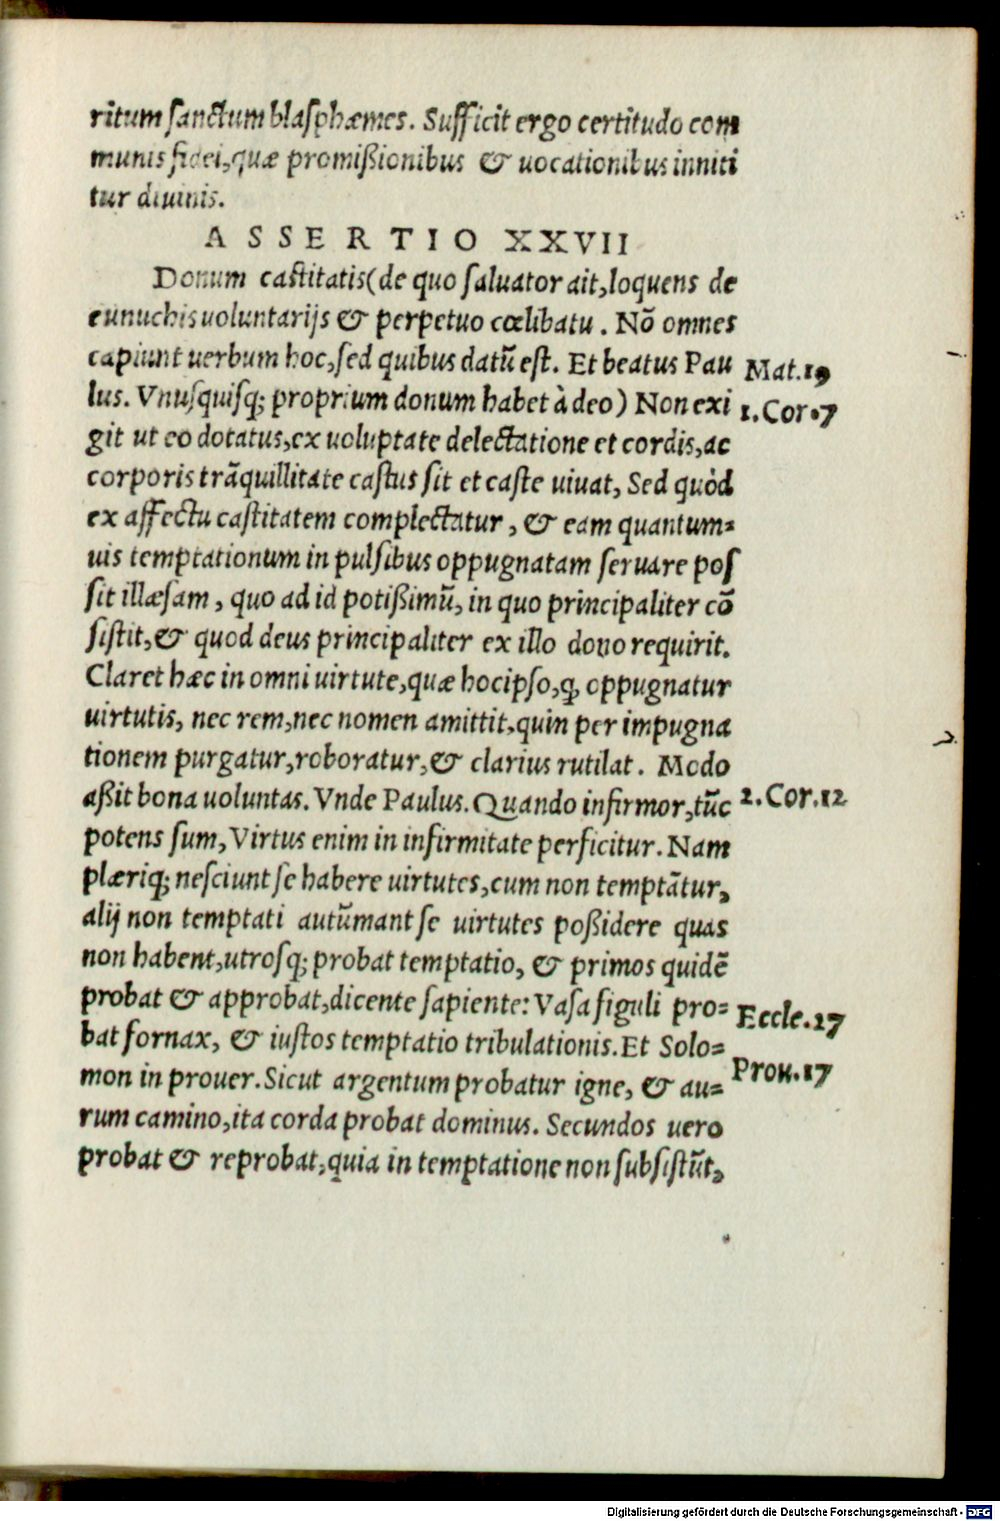 ritum ſanctum blaſphæmes. Sufficit ergo certitudo com
munis fidei, quæ promißionibus & uocationibus inniti
tur diuinis.
ASSERTIO XXVII
Donum caſtitatis (de quo ſaluator ait, loquens de
eunuchis uoluntarijs & perpetuo cœlibatu. Nõ omnes
capiunt uerbum hoc, ſed quibus datũ eſt. Et beatus Pau
Mat. 19
lus. Vnuſquiſq; proprium donum habet à deo) Non exi
1. Cor. 7
git ut eo dotatus, ex uoluptate delectatione et cordis, ac
corporis trãquillitate caſtus ſit et caſte uiuat, Sed quòd
ex affectu caſtitatem complectatur, & eam quantum-
uis temptationum in pulſibus oppugnatam ſeruare poſ
ſit illæſam, quo ad id potißimũ, in quo principaliter cõ
ſiſtit, & quod deus principaliter ex illo dono requirit.
Claret hæc in omni uirtute, quæ hocipſo, ꝙ oppugnatur
uirtutis, nec rem, nec nomen amittit, quin per impugna
tionem purgatur, roboratur, & clarius rutilat. Modo
aßit bona uoluntas. Vnde Paulus. Quando infirmor, tũc
2. Cor. 12
potens ſum, Virtus enim in infirmitate perficitur. Nam
plæriq; neſciunt ſe habere uirtutes, cum non temptãtur,
alij non temptati autũmant ſe uirtutes poßidere quas
non habent, utroſq; probat temptatio, & primos quidẽ
probat & approbat, dicente ſapiente: Vaſa figuli pro-
Eccle. 27
bat fornax, & iuſtos temptatio tribulationis. Et Solo-
mon in prouer. Sicut argentum probatur igne, & au-
Prou. 17
rum camino, ita corda probat dominus. Secundos uero
probat & reprobat, quia in temptatione non ſubſiſtũt,
Digitalisierung gefördert durch die Deutsche Forschungsgemeinschaft - DFG